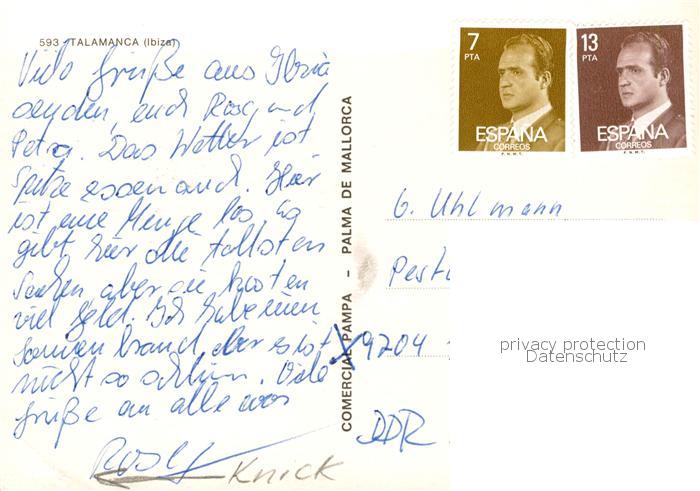 593 TALAMANCA (Ibiza)
Viele Grüße aus Ibiza
senden euch Rosa und
Petra. Das Wetter ist
Spitze essen auch. Hier
ist eine Menge los. Es
gibt hier die tollsten
Sachen aber sie kosten
viel Geld. Ich habe einen
Sonnenbrand aber es ist
nicht so schlimm. Viele
Grüße an alle von
Knick
COMERCIAL PAMPA – PALMA DE MALLORCA
7
PTA
ESPAÑA
CORREOS
F.N.M.T.
13
PTA
ESPAÑA
CORREOS
F.N.M.T.
G. Uhlmann
9204
DDR
privacy protection
Datenschutz